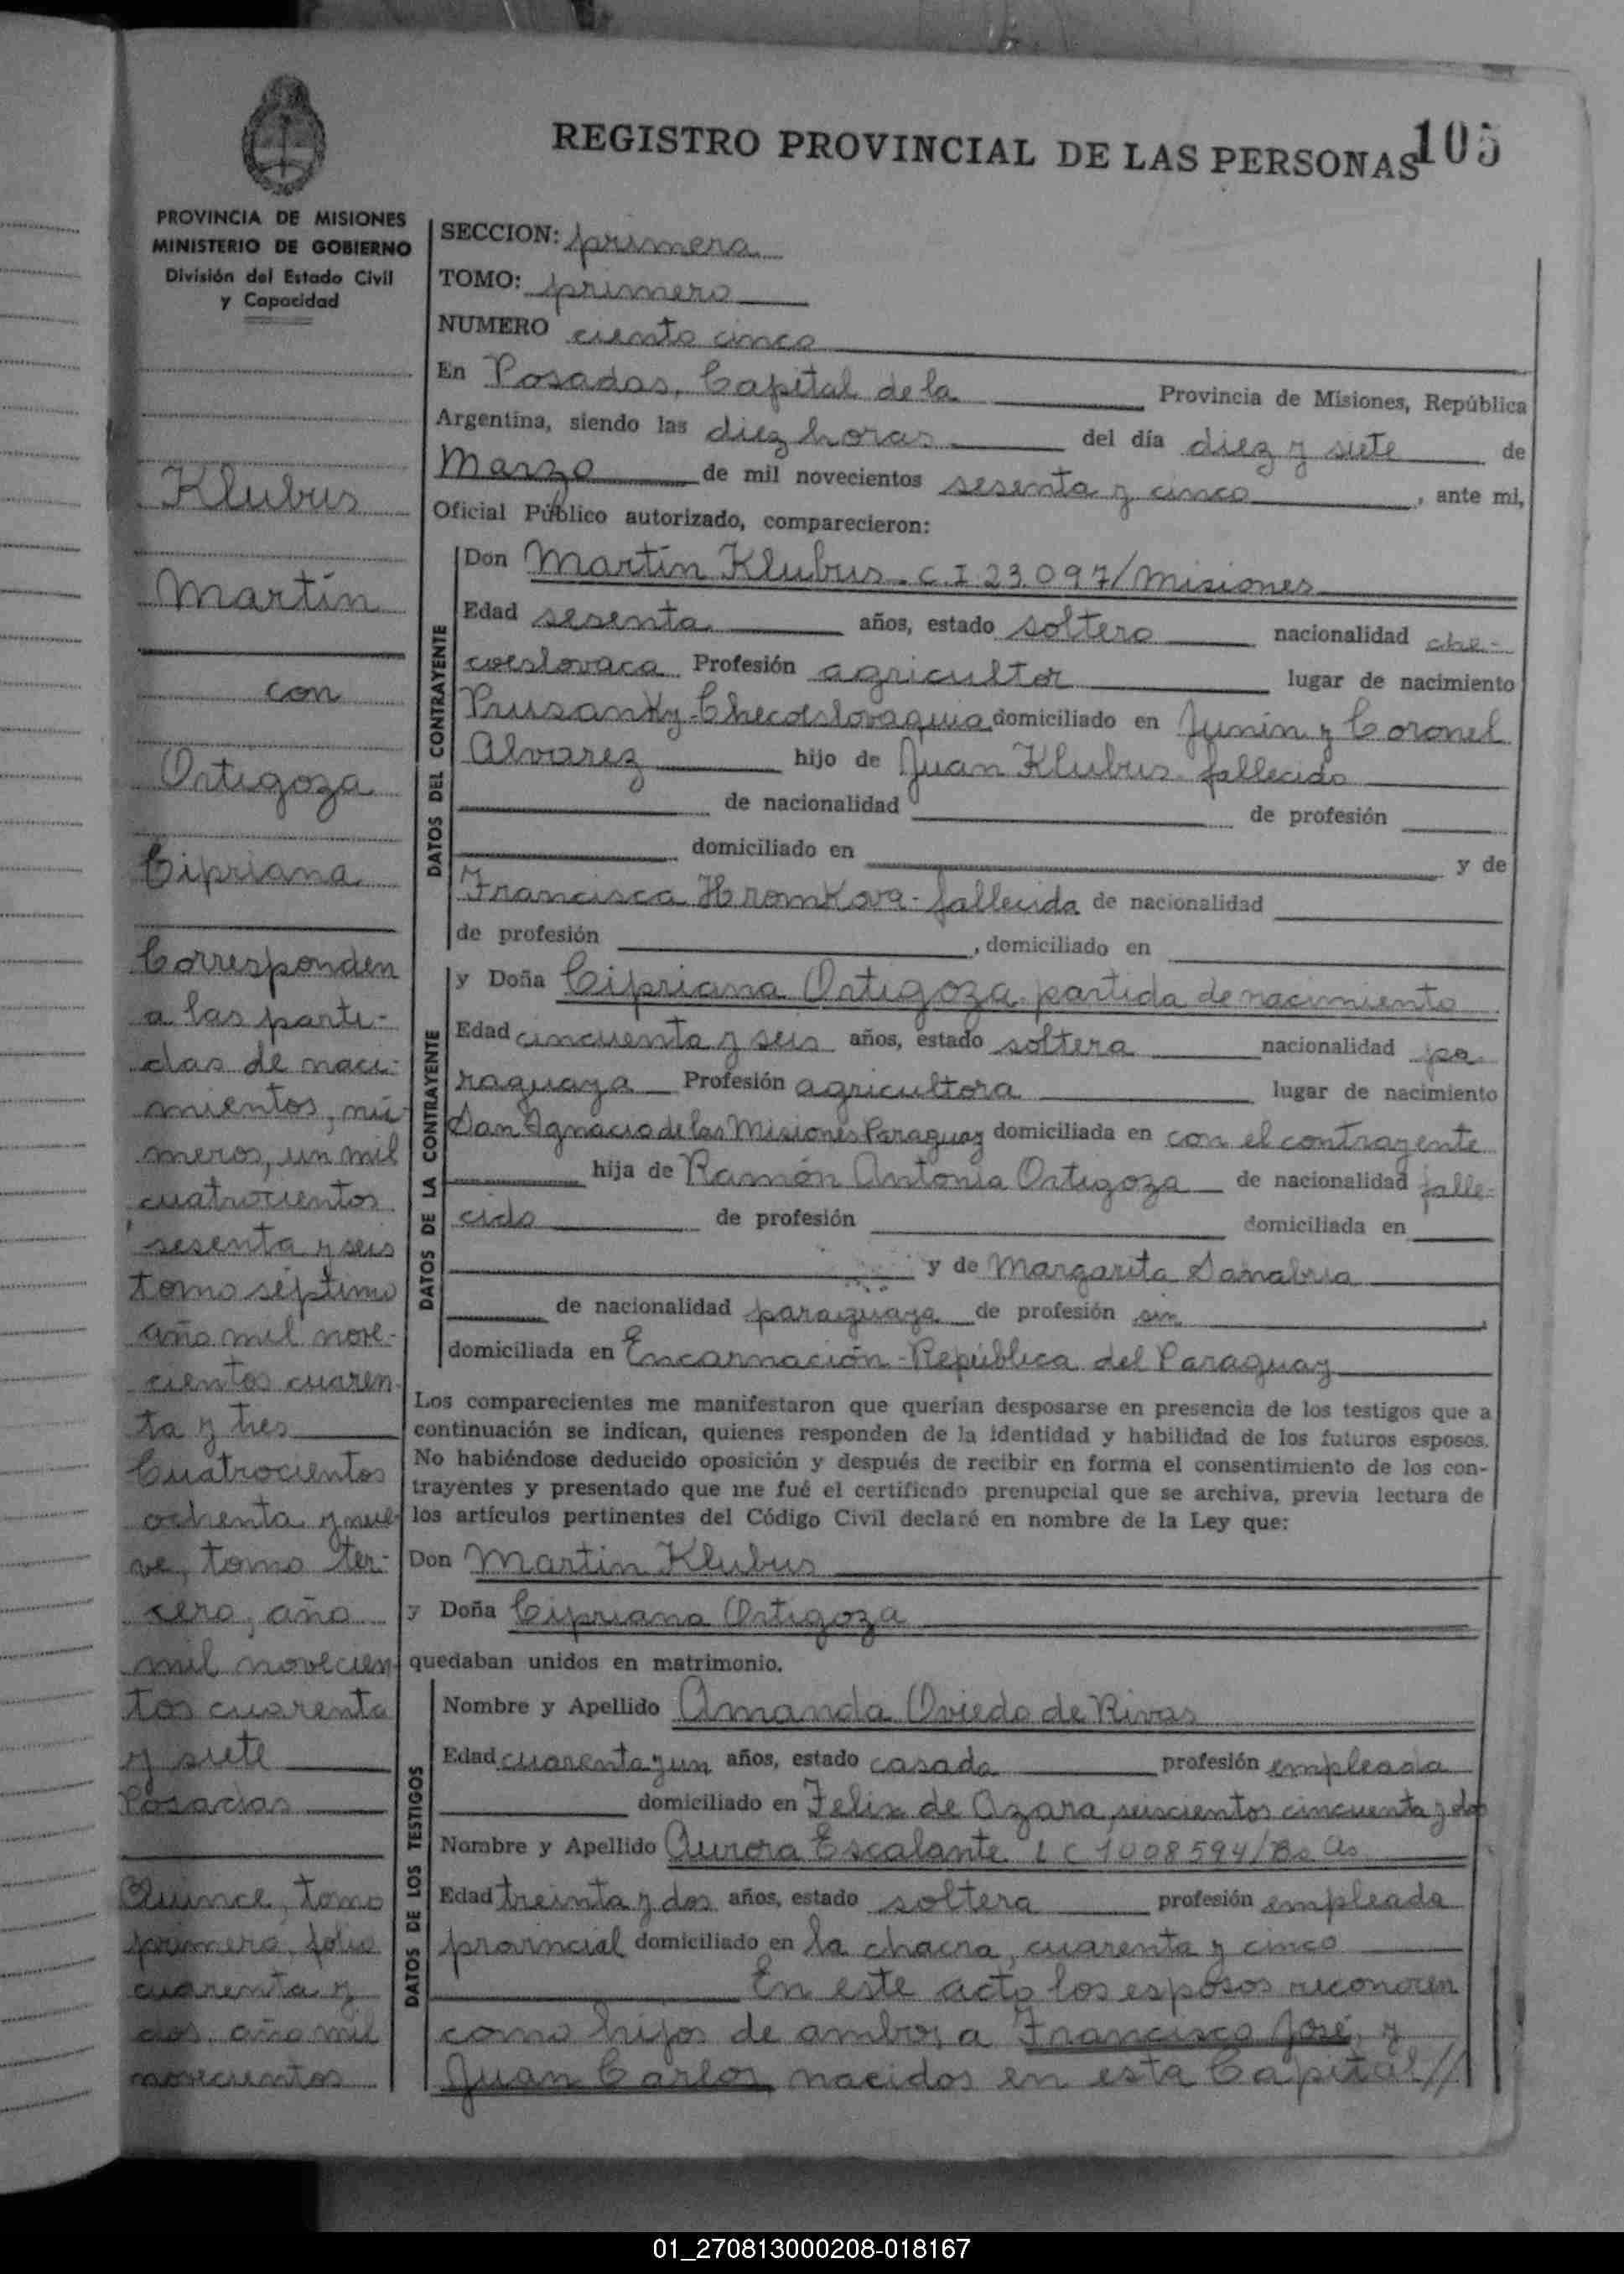 REGISTRO PROVINCIAL DE LAS PERSONAS 105
PROVINCIA DE MISIONES
MINISTERIO DE GOBIERNO
División del Estado Civil
y Capacidad
Klubus
Martín
con
Ortigoza
Cipriana
Corresponden
a las parti-
das de naci-
mientos, nú-
meros, un mil
cuatrocientos
sesenta y seis
tomo séptimo
año mil nove-
cientos cuaren-
ta y tres
Cuatrocientos
ochenta y nue-
ve, tomo ter-
cero, año
mil novecien
tos cuarenta
y siete
Posadas
Quince, tomo
primero, folio
cuarenta y
dos, año mil
novecientos
SECCION: primera
TOMO: primero
NUMERO ciento cinco
En Posadas, Capital de la Provincia de Misiones, República
Argentina, siendo las diez horas del día diez y siete de
Marzo de mil novecientos sesenta y cinco, ante mi,
Oficial Público autorizado, comparecieron:
DATOS DEL CONTRAYENTE
Don Martín Klubus. C.I 23.097/Misiones
Edad sesenta años, estado soltero nacionalidad che-
coeslovaca Profesión agricultor lugar de nacimiento
Prusanky-Checoeslovaquia domiciliado en Junín y Coronel
Alvarez hijo de Juan Klubus-fallecido
de nacionalidad de profesión
domiciliado en y de
Francisca Hromkova-fallecida de nacionalidad
de profesión , domiciliado en
DATOS DE LA CONTRAYENTE
y Doña Cipriana Ortigoza-partida de nacimiento
Edad cincuenta y seis años, estado soltera nacionalidad pa
raguaya Profesión agricultora lugar de nacimiento
San Ignacio de las Misiones Paraguay domiciliada en con el contrayente
hija de Ramón Antonio Ortigoza de nacionalidad falle-
cido de profesión domiciliada en
y de Margarita Sanabria
de nacionalidad paraguaya de profesión sin
domiciliada en Encarnación-República del Paraguay
Los comparecientes me manifestaron que querían desposarse en presencia de los testigos que a
continuación se indican, quienes responden de la identidad y habilidad de los futuros esposos.
No habiéndose deducido oposición y después de recibir en forma el consentimiento de los con-
trayentes y presentado que me fué el certificado prenupcial que se archiva, previa lectura de
los artículos pertinentes del Código Civil declaré en nombre de la Ley que:
Don Martin Klubus
y Doña Cipriana Ortigoza
quedaban unidos en matrimonio.
DATOS DE LOS TESTIGOS
Nombre y Apellido Amanda Oviedo de Rivas
Edad cuarenta y un años, estado casada profesión empleada
domiciliado en Felix de Azara, seiscientos cincuenta y dos
Nombre y Apellido Aurora Escalante L C 1008594/Bs As
Edad treinta y dos años, estado soltera profesión empleada
provincial domiciliado en la chacra, cuarenta y cinco
En este acto los esposos reconocen
como hijos de ambos, a Francisco José, y
Juan Carlos, nacidos en esta Capital//
01_270813000208-018167